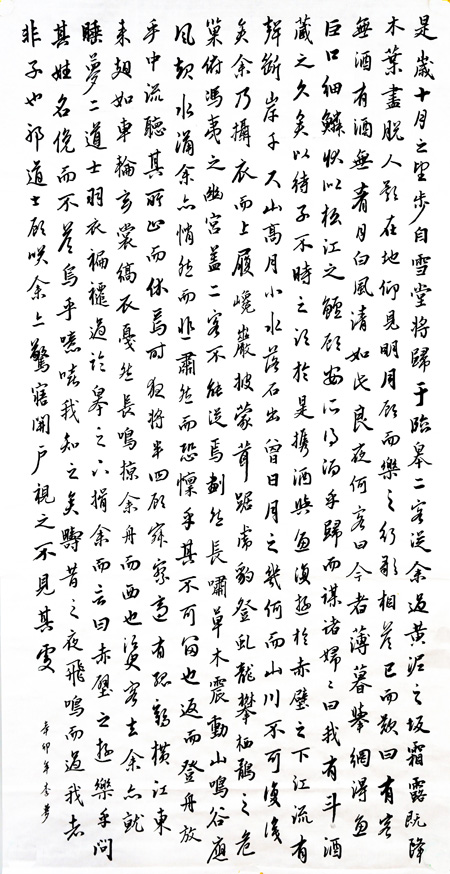 是歲十月之望步自雪堂將歸于臨皋二客從余過黃泥之坂霜露既降
木葉盡脫人影在地仰見明月顧而樂之行歌相答已而歎曰有客
無酒有酒無肴月白風清如此良夜何客曰今者薄暮舉網得魚
巨口細鱗狀似松江之鱸顧安所得酒乎歸而謀諸婦〻曰我有斗酒
藏之久矣以待子不時之須於是攜酒與魚復遊於赤壁之下江流有
聲斷岸千尺山高月小水落石出曾日月之幾何而山川不可復識
矣余乃攝衣而上履巉巖披蒙茸踞虎豹登虬龍攀栖鶻之危
巢俯馮夷之幽宮蓋二客不能從焉劃然長嘯草木震動山鳴谷應
風起水涌余亦悄然而悲肅然而恐懍乎其不可留也返而登舟放
乎中流聽其所止而休焉時夜將半四顧寂寥適有孤鶴橫江東
來翅如車輪玄裳縞衣戛然長鳴掠余舟而西也須客去余亦就
睡夢二道士羽衣褊褼過於皋之下揖余而言曰赤壁之遊樂乎問
其姓名俛而不答烏乎噫嘻我知之矣疇昔之夜飛鳴而過我者
非子也邪道士顧笑余亦驚寤開戶視之不見其處
辛卯年李夢